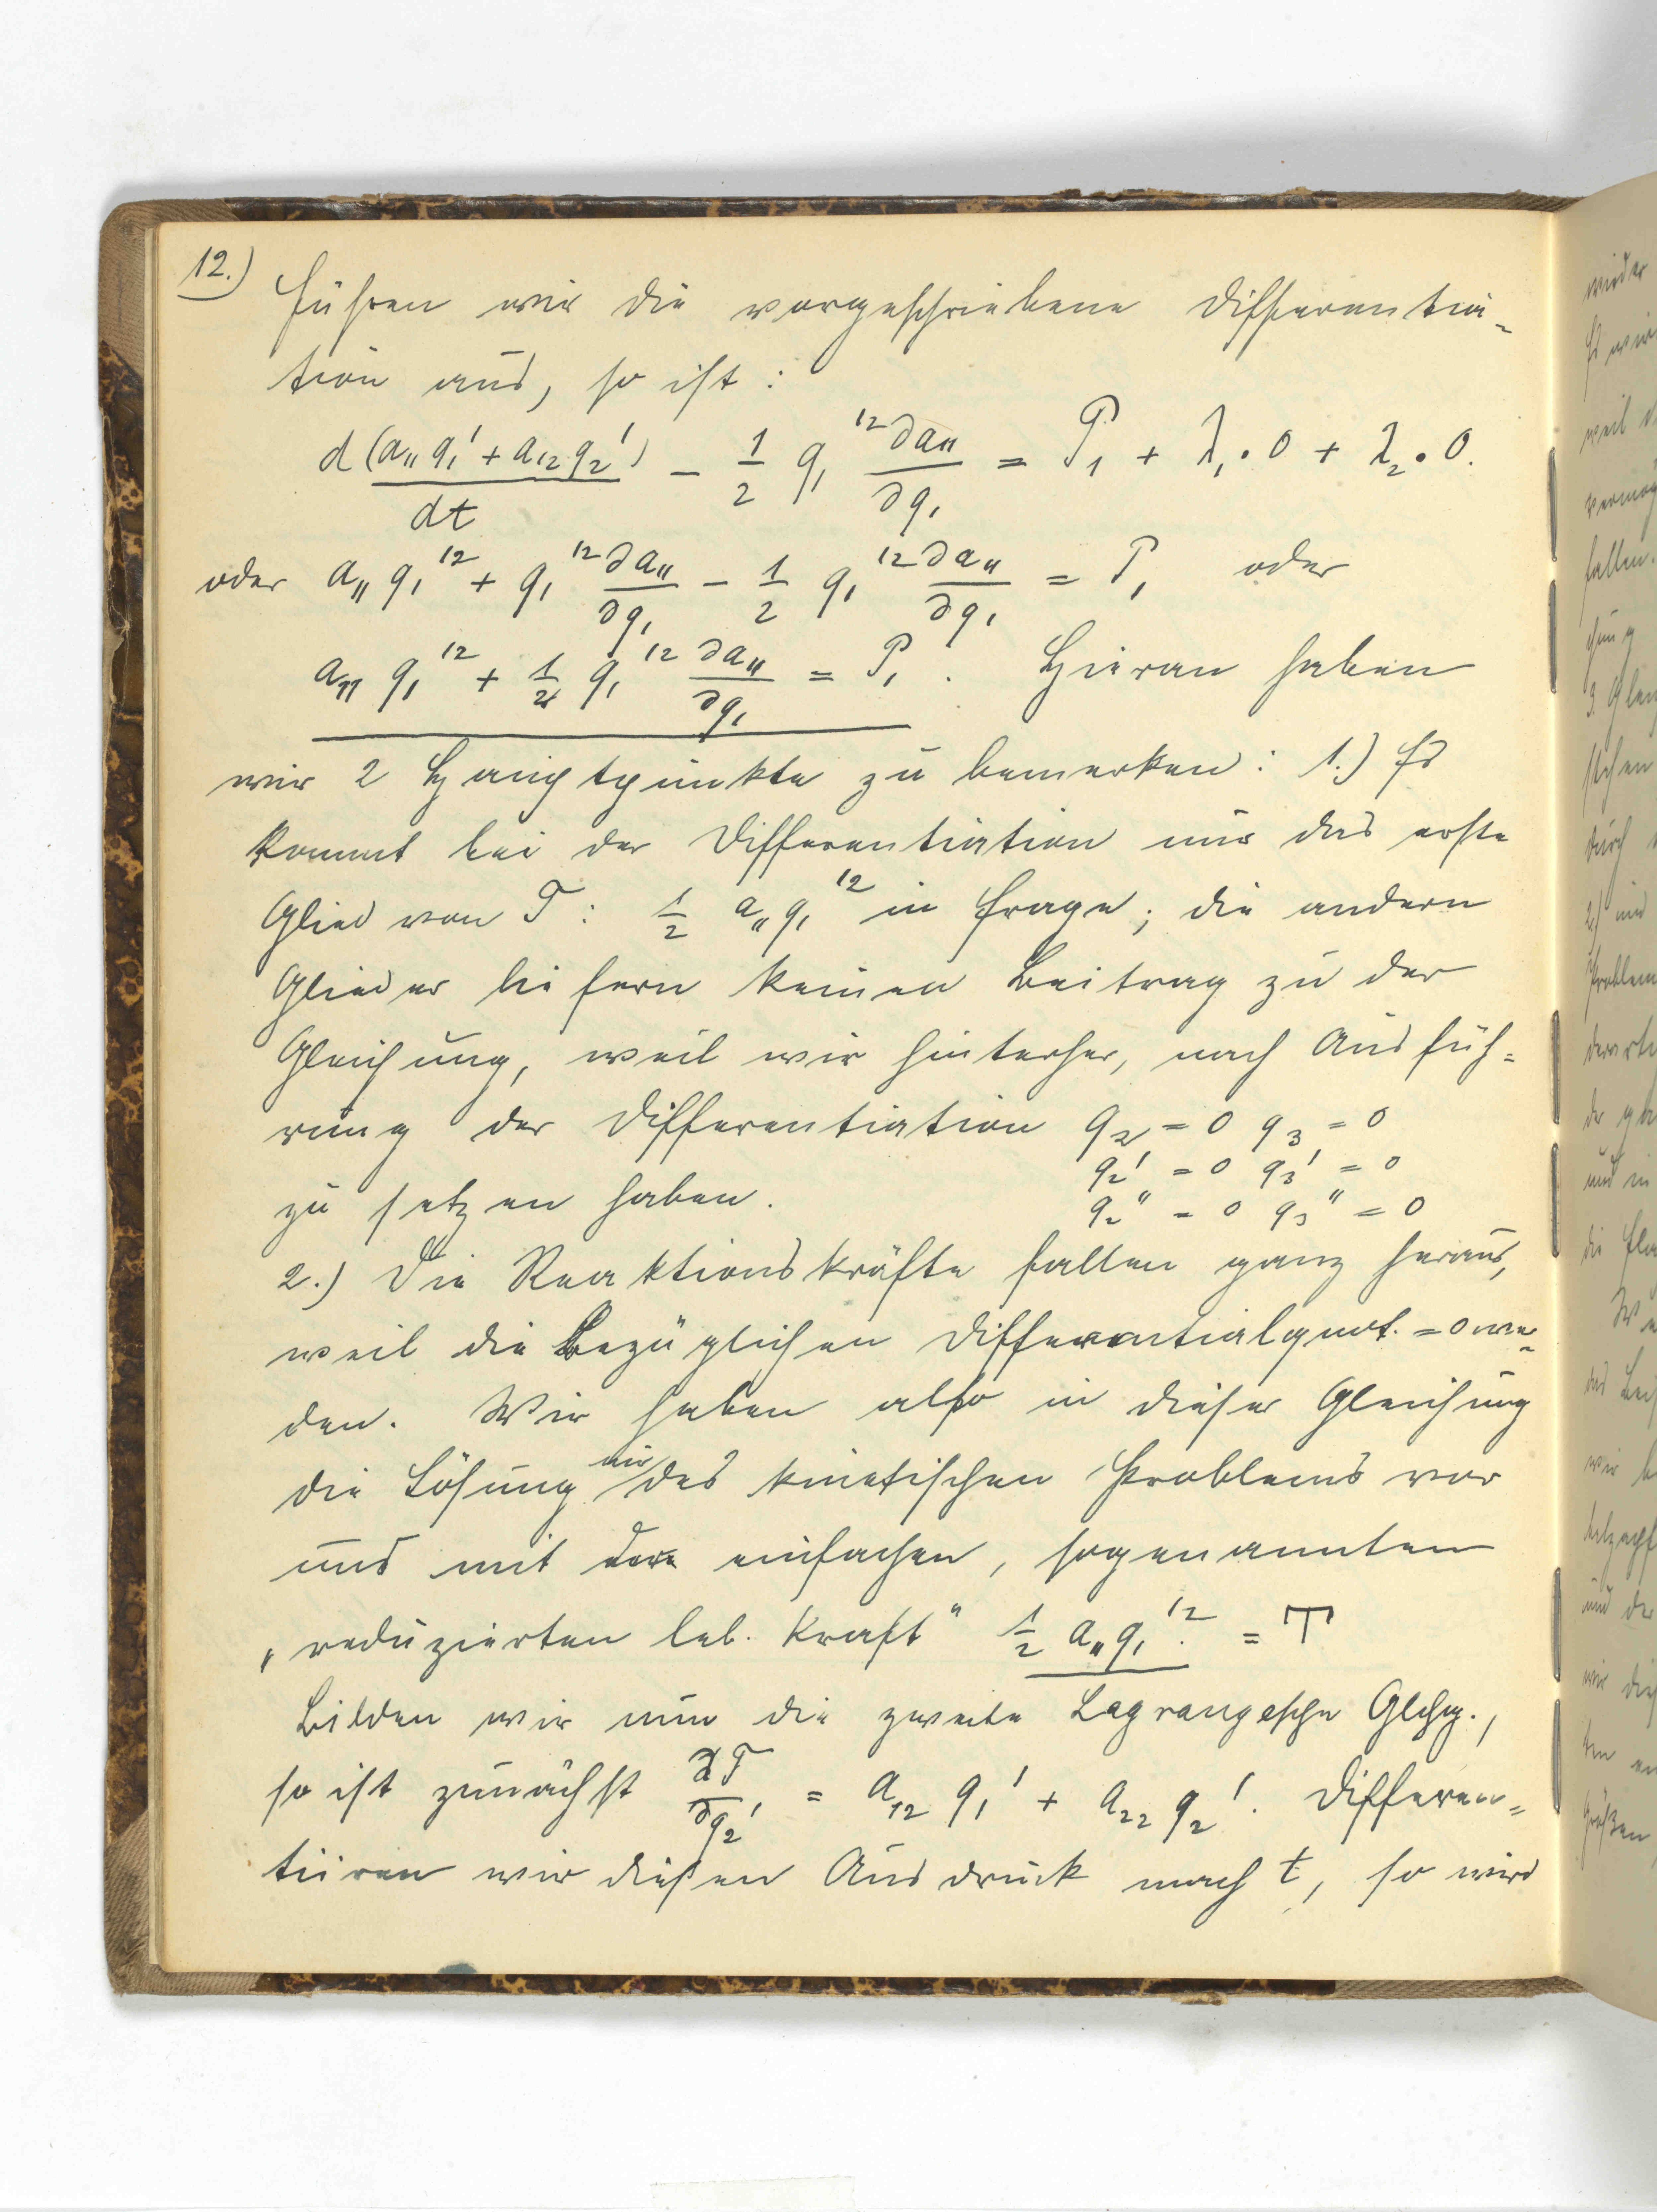 12.)
Führen wir die vorgeschriebene Differentia-
tion aus, so ist:
d(a₁₁ q₁' + a₁₂ q₂')/dt − 1/2 q₁'² ∂a₁₁/∂q₁ = P₁ + λ₁·0 + λ₂·0.
oder a₁₁ q₁'² + q₁'² ∂a₁₁/∂q₁ − 1/2 q₁'² ∂a₁₁/∂q₁ = P₁ oder
a₁₁ q₁'² + 1/2 q₁'² ∂a₁₁/∂q₁ = P₁. Hieran haben
wir 2 Hauptpunkte zu bemerken: 1.) Es
kommt bei der Differentiation nur das erste
Glied von T: 1/2 a₁₁ q₁'² in Frage; die andern
Glieder liefern keinen Beitrag zu der
Gleichung, weil wir hinterher, nach Ausfüh=
rung der Differentiation q₂ = 0 q₃ = 0
q₂' = 0 q₃' = 0
zu setzen haben. q₂'' = 0 q₃'' = 0
2.) Die Reaktionskräfte fallen ganz heraus,
weil die Bezüglichen Differentialquot. = 0 wer-
den. Wir haben also in dieser Gleichung
die Lösung nur des kinetischen Problems vor
uns mit der einfachen, sogenannten
„reduzierten leb. Kraft“ 1/2 a₁₁ q₁'². = T
Bilden wir nun die zweite Lagrangesche Glchg.,
so ist zunächst ∂T/∂q₂' = a₁₂ q₁' + a₂₂ q₂'. Differen=
tiiren wir diesen Ausdruck nach t, so wird